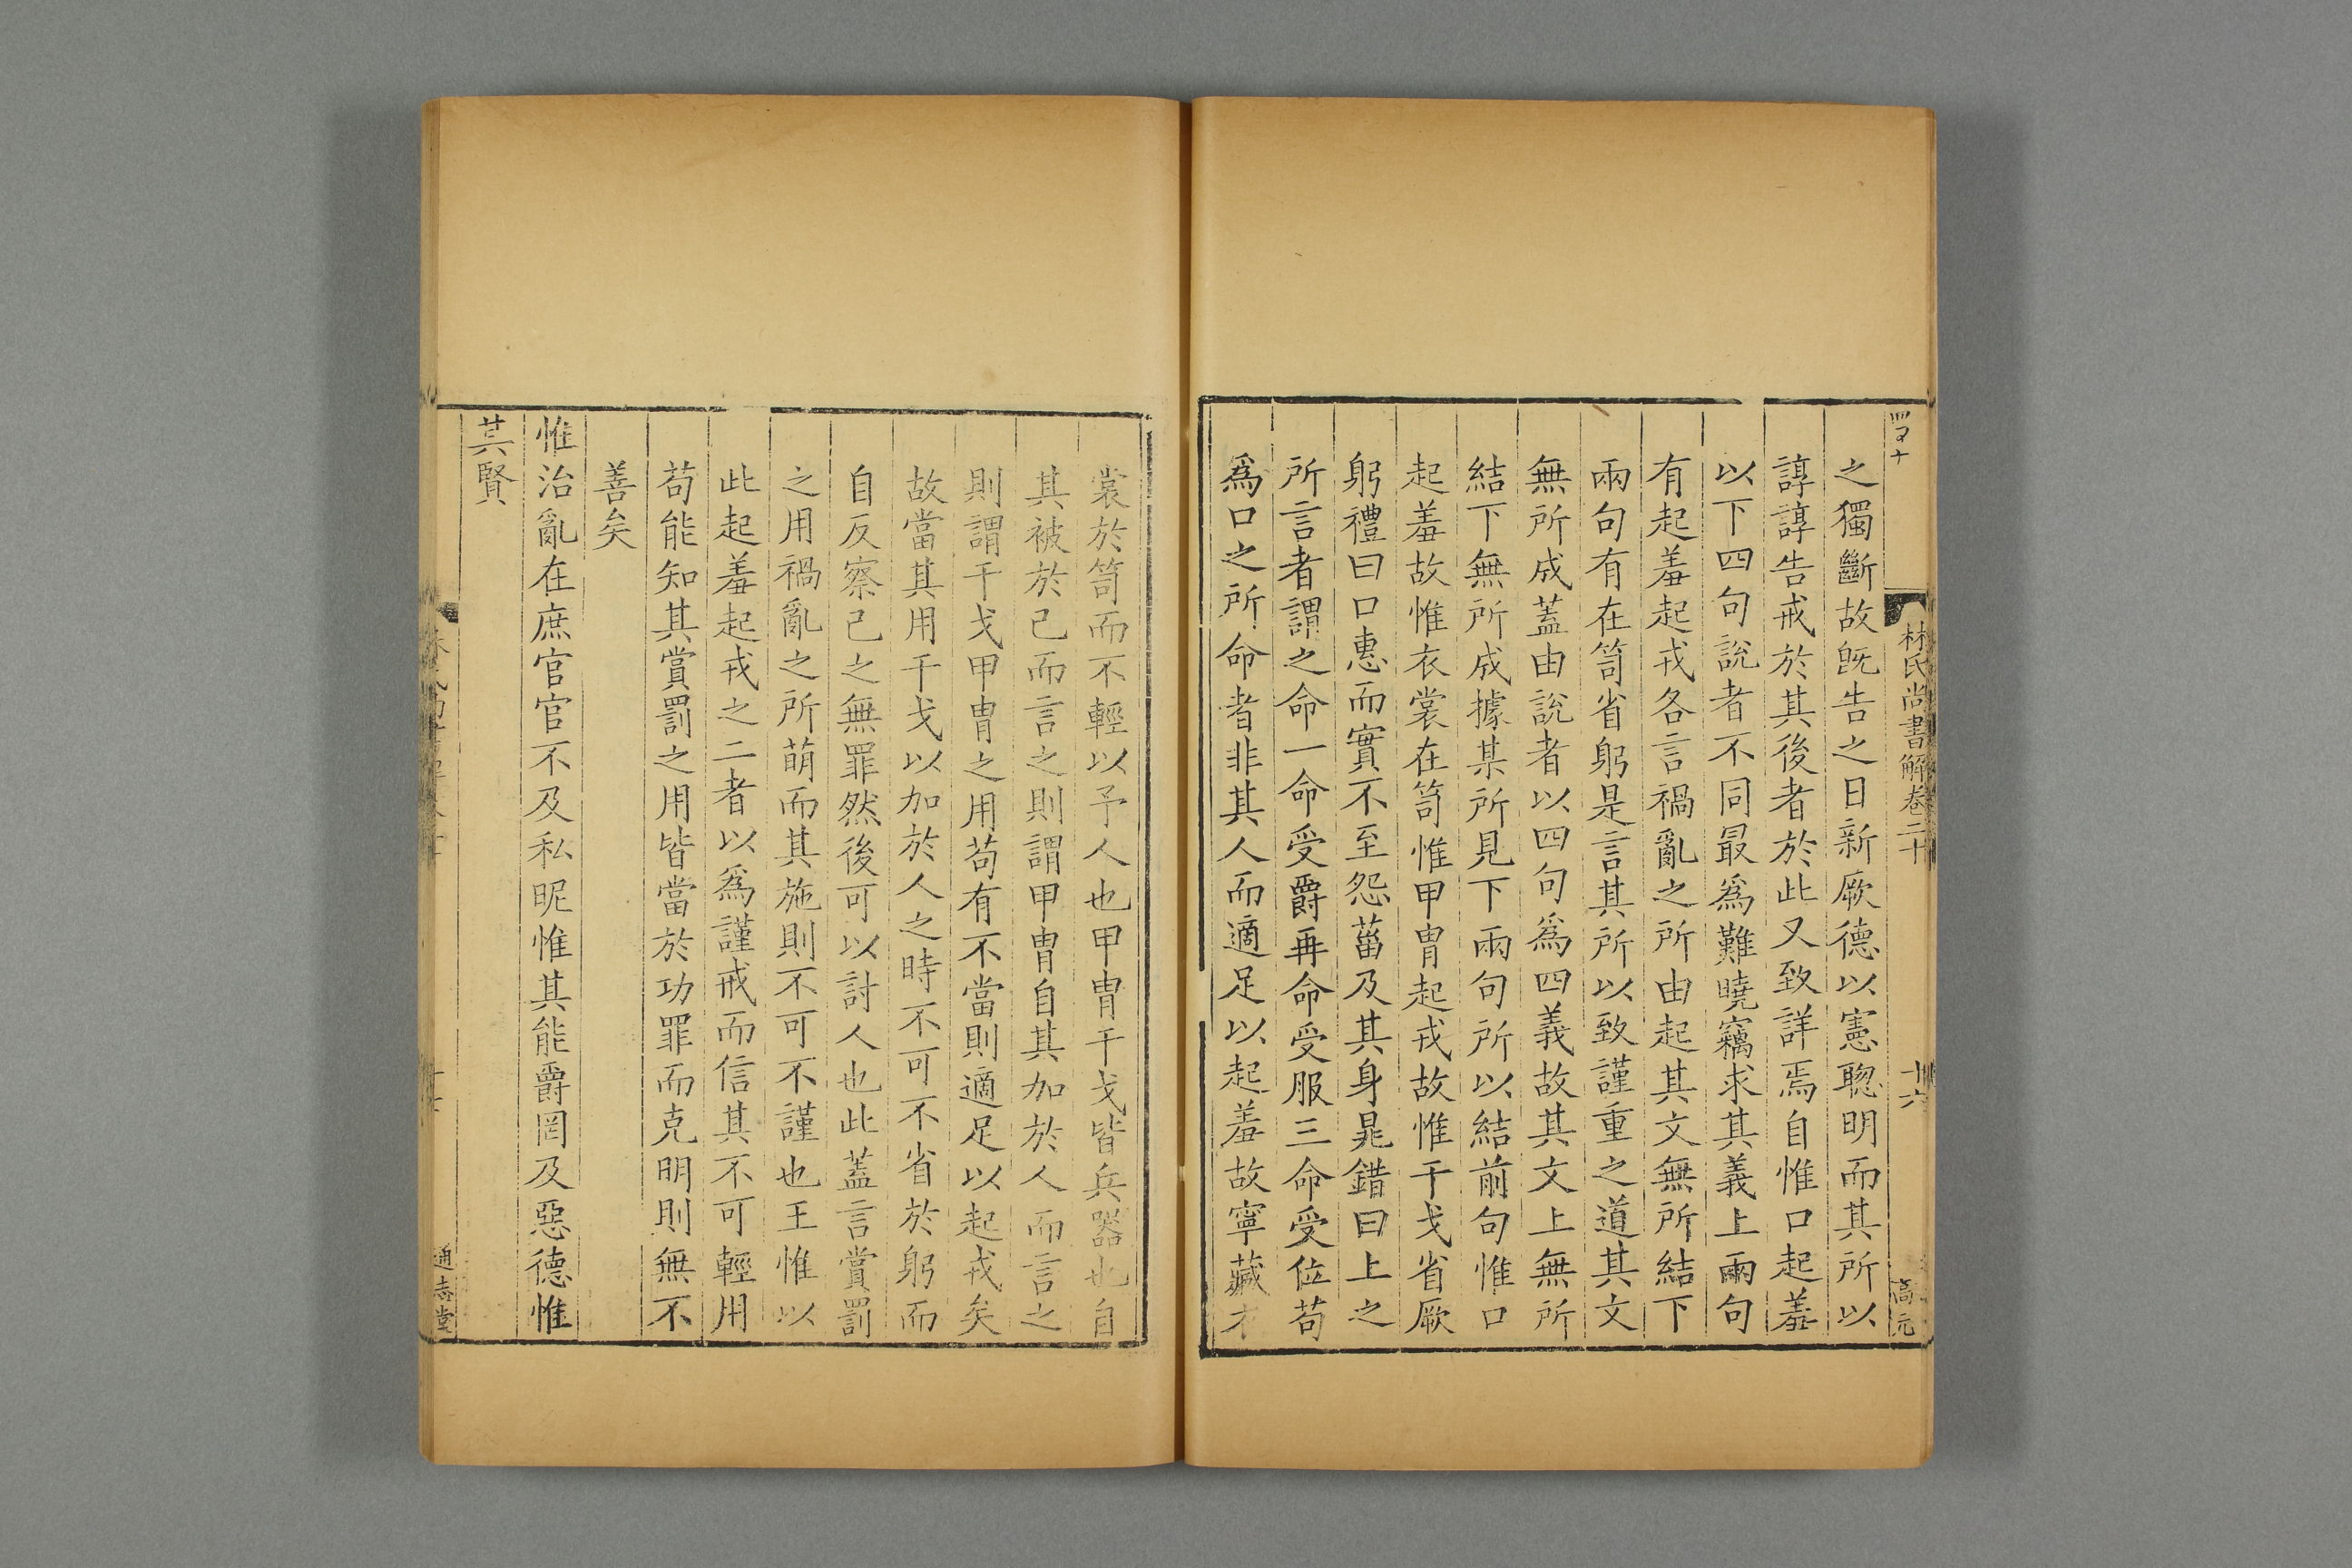 林氏尚書解卷二十
十六
高元
之獨斷故既告之日新厥德以憲聰明而其所以
諄諄告戒於其後者於此又致詳焉自惟口起羞
以下四句說者不同最爲難曉竊求其義上兩句
有起羞起戎各言禍亂之所由起其文無所結下
兩句有在笥省躬是言其所以致謹重之道其文
無所成蓋由說者以四句爲四義故其文上無所
結下無所成據某所見下兩句所以結前句惟口
起羞故惟衣裳在笥惟甲冑起戎故惟干戈省厥
躬禮曰口惠而實不至怨菑及其身晁錯曰上之
所言者謂之命一命受爵再命受服三命受位苟
爲口之所命者非其人而適足以起羞故寧藏衣
裳於笥而不輕以予人也甲冑干戈皆兵器也自
其被於己而言之則謂甲冑自其加於人而言之
則謂干戈甲冑之用苟有不當則適足以起戎矣
故當其用干戈以加於人之時不可不省於躬而
自反察己之無罪然後可以討人也此蓋言賞罰
之用禍亂之所萌而其施則不可不謹也王惟以
此起羞起戎之二者以爲謹戒而信其不可輕用
苟能知其賞罰之用皆當於功罪而克明則無不
善矣
惟治亂在庶官官不及私昵惟其能爵罔及惡德惟
其賢
通志堂